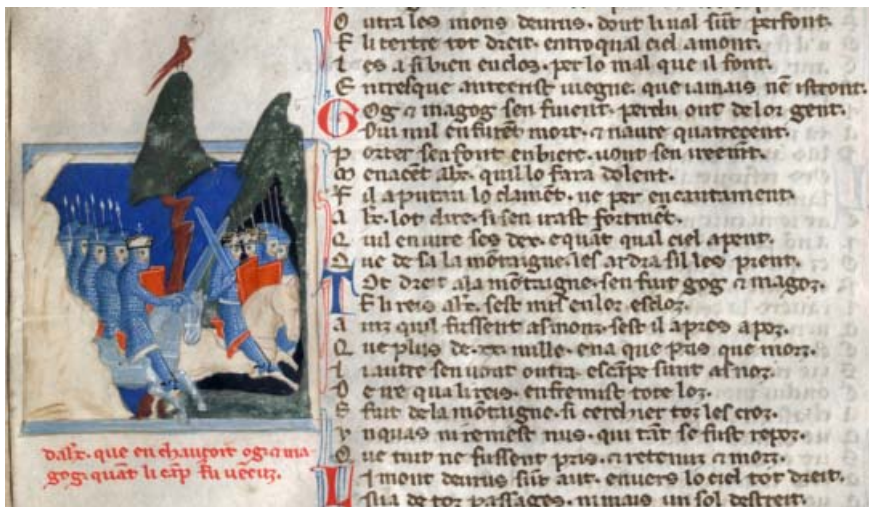 O utra les mons deurus. dont li ual sunt perfont.
E li tertre tot dreit. entro qual ciel amont.
I es a si bien enclox. per lo mal que il font.
E ntresque antecrist uegne. que iamais nen istront.
G Og ⁊ magog sen fuient. perdu ont de lor gent.
Dui mil en furent mort. ⁊ naure quatrecent.
P orter se a font en biere. uont sen
M enacent alx̄. quil lo fara dolent.
F il a putan lo clament. ne per encantament.
A lx̄. lot dire. si sen irast forment.
Q uil en iure ses dex. e quant qual ciel apent.
Q ue de sa la montaigne. les ardra sil les prent.
T Ot dreit a la montaigne. sen fuit gog ⁊ magoz.
E li reis alx̄. sest mis en lor escloz.
A inz quil fussent as monz. sest il apres apoz.
Q ue plus de .xx. mille. en a que pris que morz.
L i autre sen uont outra. escanpe sunt as noz.
D e ne qua li reis. enfremist tote loz.
S fuit de la montaigne. si cercher toz les croz.
V nquas ni remest nus. qui tant se fust repoz.
Q ue tuit ne fussent pris. ⁊ retenuz ⁊ morz.
L I mont deurus sunt aut. enuers lo ciel tot dreit.
sua de toz passages. ni mais un sol destreit.
dalx̄. que en chaucoit og. ⁊ ma-
gog. quant li canp fu uencuz.